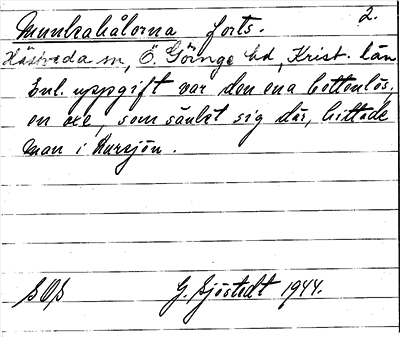 Munkahålorna forts. 2.
Hästveda sn, Ö. Göinge hd, Krist. län
Enl. uppgift var den ena bottenlös,
en oxe, som sänkt sig där, hittade
man i Aursjön.
SOS G. Sjöstedt 1944.